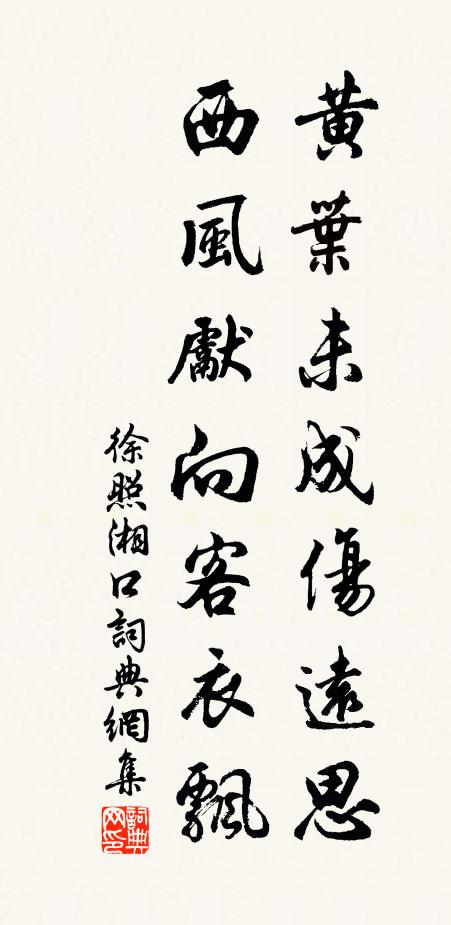 黃葉未成傷遠思
西風獻向客衣飄
徐照湘口詞典網集
詞典
网印